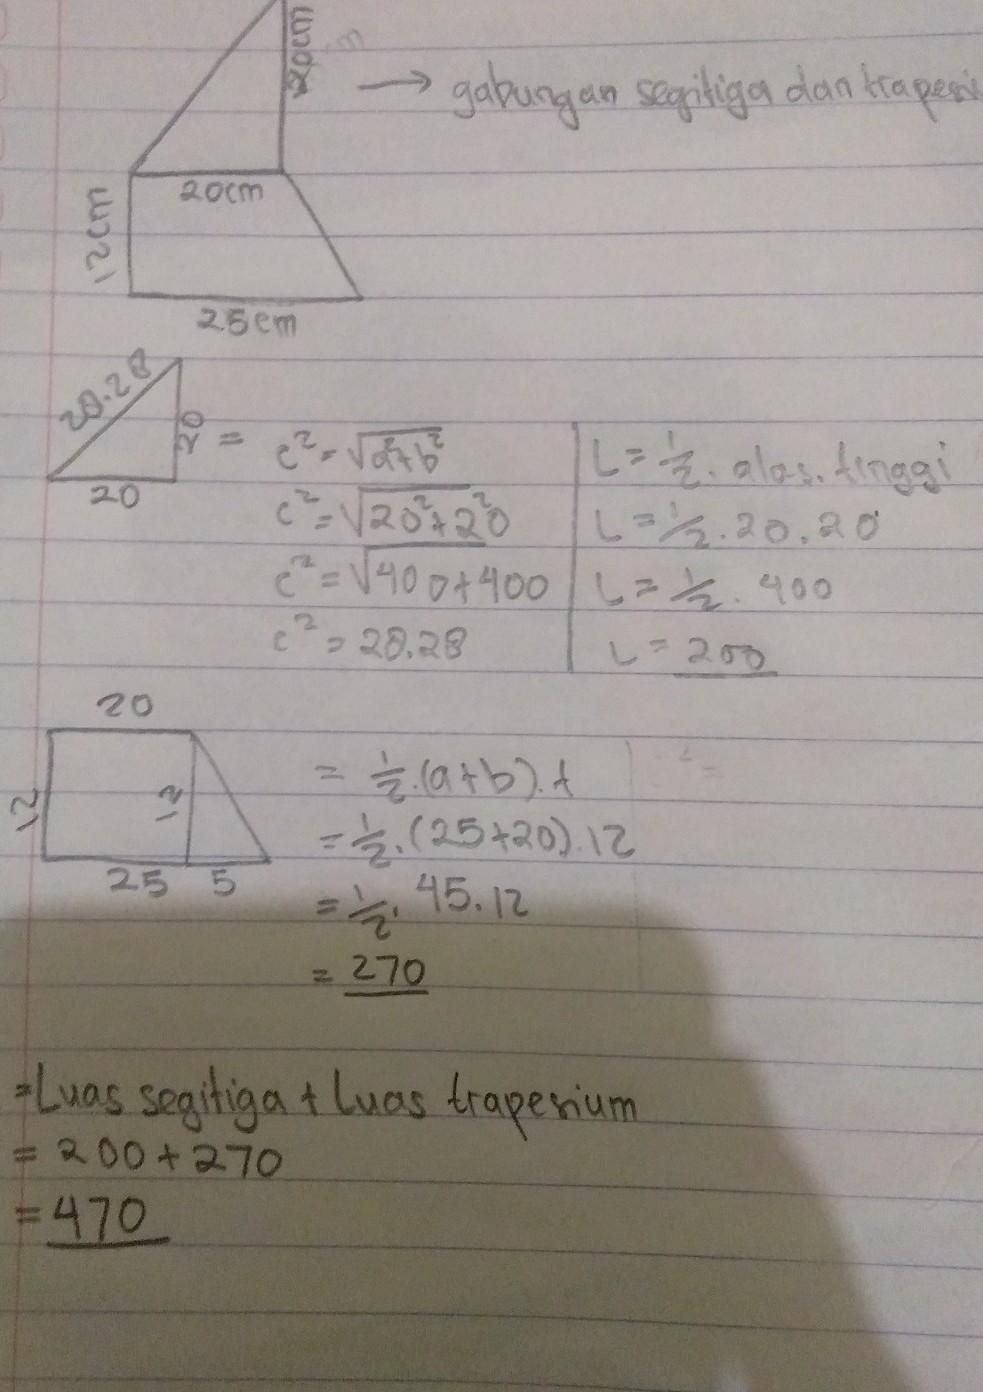 20cm
→ gabungan segitiga dan trapesi
20cm
12cm
25cm
28.28
20
20
=
c² = √a²+b²
c² = √20²+2²0
c² = √400+400
c² = 28.28
L = 1/2 . alas . tinggi
L = 1/2 . 20 . 20
L = 1/2 . 400
L = 200
20
12
12
25 5
= 1/2 . (a+b) . t
= 1/2 . (25+20) . 12
= 1/2 . 45 . 12
= 270
= Luas segitiga + Luas trapesium
= 200 + 270
= 470